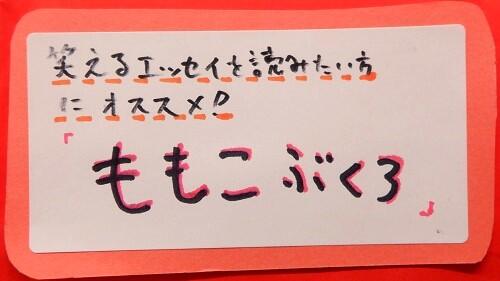 笑えるエッセイを読みたい方
にオススメ!
「ももこぶくろ」